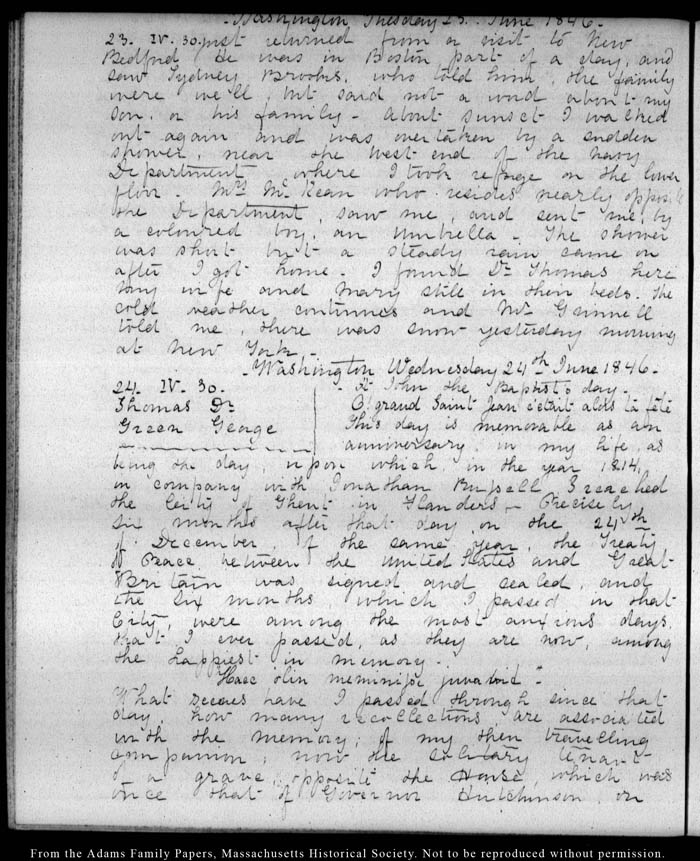 Washington Tuesday 23. June 1846.
23. IV. 30. just returned from a visit to New
Bedford. He was in Boston part of a day, and
saw Sydney Brooks, who told him, the family
were well, but said not a word about my
Son, or his family - About sunset I walked
out again and was overtaken by a sudden
shower, near the west end of the Navy
Department where I took refuge on the lower
floor. Mrs. McKean who resides nearly opposite
the Department, saw me, and sent me by
a coloured boy, an umbrella - The shower
was short but a steady rain came on
after I got home. I found Dr. Thomas here
my wife and Mary still in their beds. The
cold weather continues and Mr. Grinnell
told me, there was snow yesterday morning
at New York -
Washington Wednesday 24th June 1846.
24. IV. 30. - St John the Baptist's day -
Thomas Dr O! grand Saint Jean c'était alors ta fête
Green George This day is memorable as an
anniversary, in my life, as
being the day, upon which, in the year 1814,
in company with Jonathan Russell I reached
the City of Ghent in Flanders - Precisely
six months after that day on the 24th
of December, of the same year, the Treaty
of Peace between the United States and Great
Britain was signed and sealed, and
the six months, which I passed in that
City, were among the most anxious days,
that I ever passed, as they are now, among
the happiest in memory -
Haec olim meminisse juvabit -
What scenes have I passed through since that
day, how many recollections are associated
with the memory, of my then travelling
companion, now the solitary tenant
of a grave, opposite the House, which was
once that of Governor Hutchinson, on
From the Adams Family Papers, Massachusetts Historical Society. Not to be reproduced without permission.